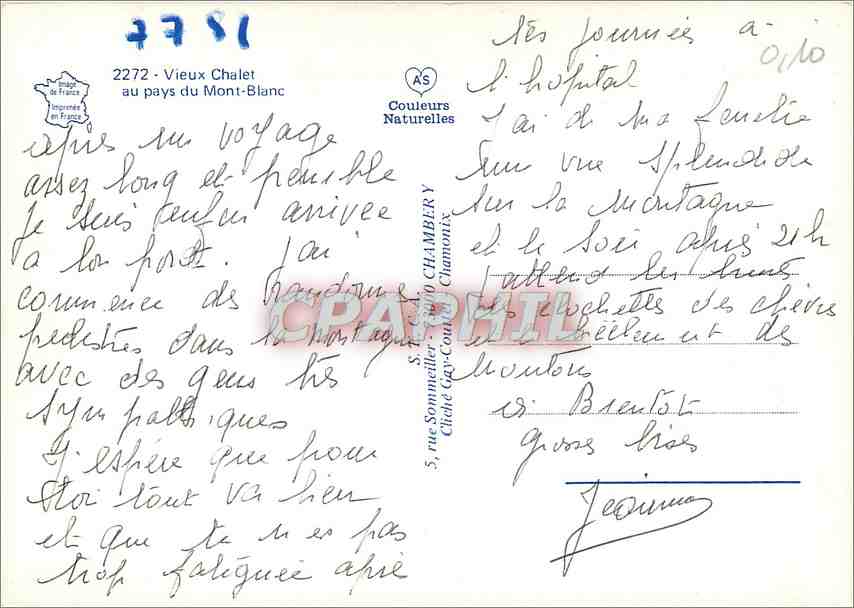 7781
2272 - Vieux Chalet
au pays du Mont-Blanc
Image
de France
Imprimée
en France
AS
Couleurs
Naturelles
après un voyage
assez long et penible
je suis enfin arrivée
a bon port. j'ai
commencé des randonnées
pedestres dans la montagne
avec des gens très
sympathiques
J'espère que pour
toi tout va bien
et que tu n'es pas
trop fatiguée après
S.
5, rue Sommeiller - 73000 CHAMBERY
Cliché Gay-Couttet Chamonix
CPAPHIL
tes journées a
l'hopital
0,10
J'ai de ma fenetre
une vue splendide
sur la montagne
et le soir après 21h
j'attend les bruits
des clochettes des chèvres
et le bêlement des
moutons
a Bientot
grosses bises
Jeanine